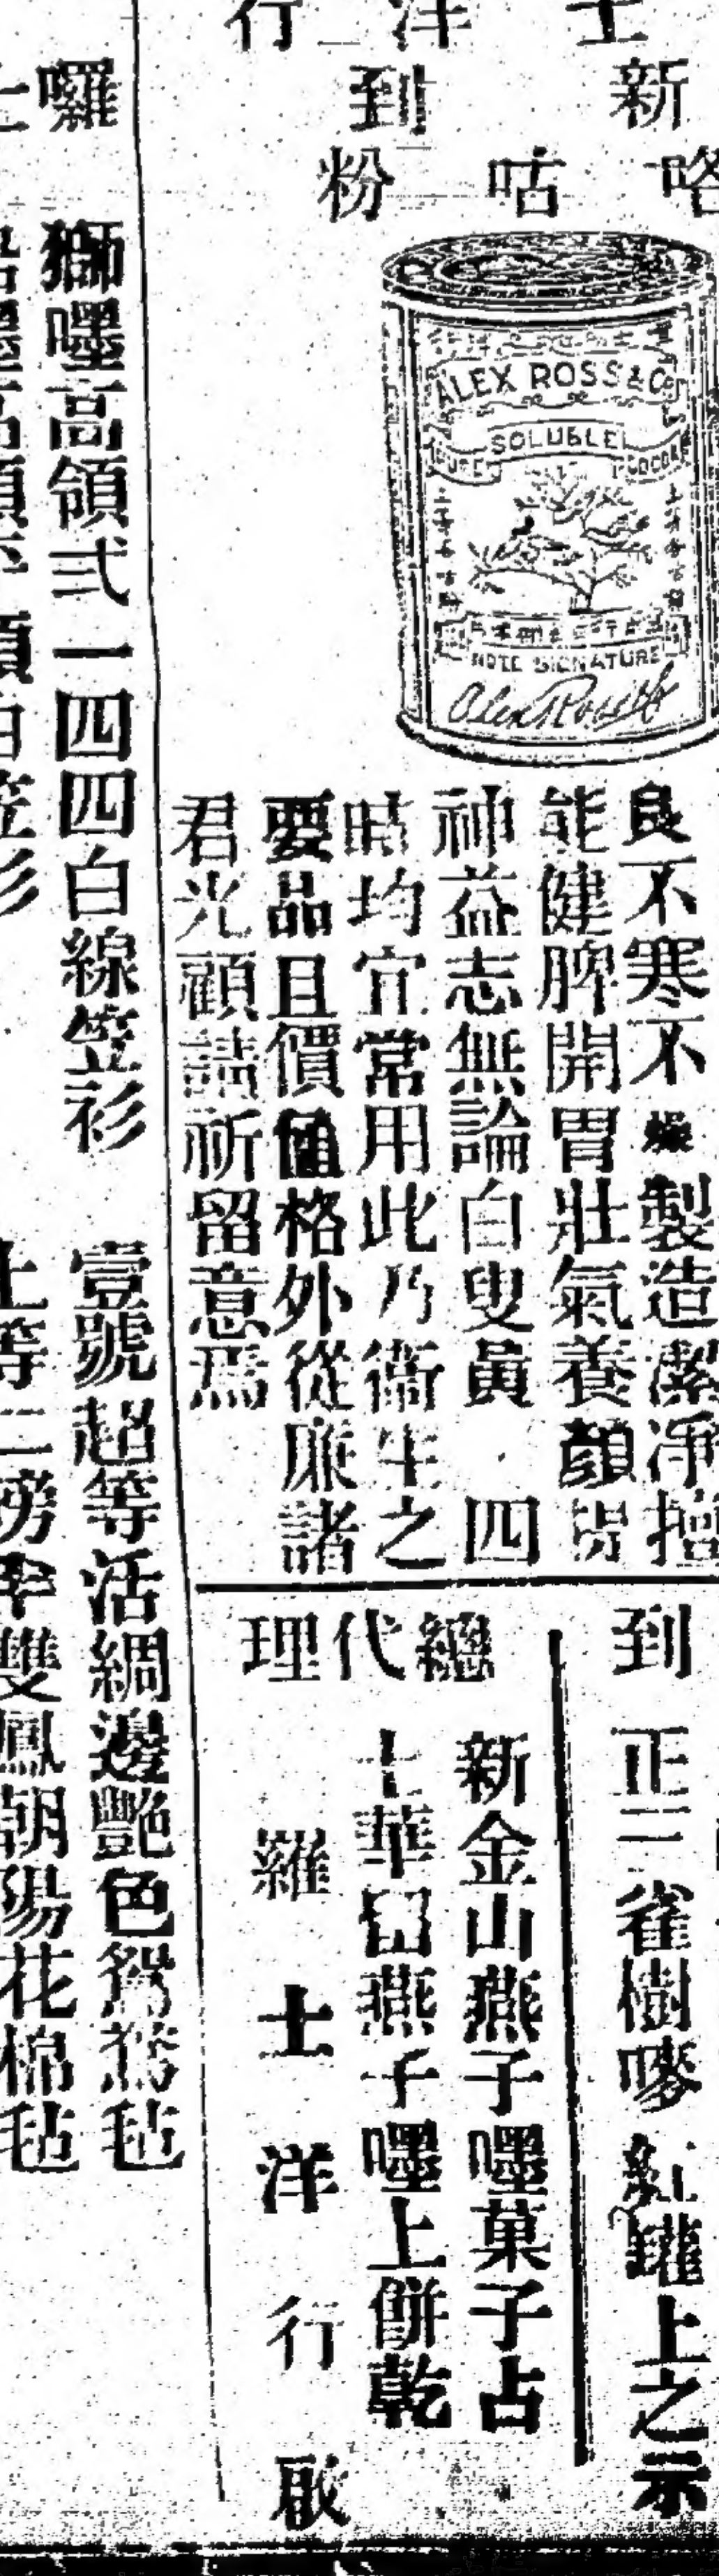 士洋行
新到
咯咕粉
ALEX ROSS & Co
SOLUBLE
PURE COCOA
NOTE SIGNATURE
Alex Ross & Co
良不寒不燥製造潔淨擅
能健脾開胃壯氣養顏提
神益志無論白叟黃 四
時均宜常用此乃衞生之
要品且價值格外從廉諸
君光顧請祈留意焉
到 正三雀樹嘜紅罐上之示
總代理
新金山燕子嘿菓子占
士華田燕子嘿上餅乾
羅士洋行啟
囉 獅嘿高領弍一四四白線笠衫 壹號超等活綢邊艷色鴛鴦毡
上等二磅半雙鳳朝陽花棉毡